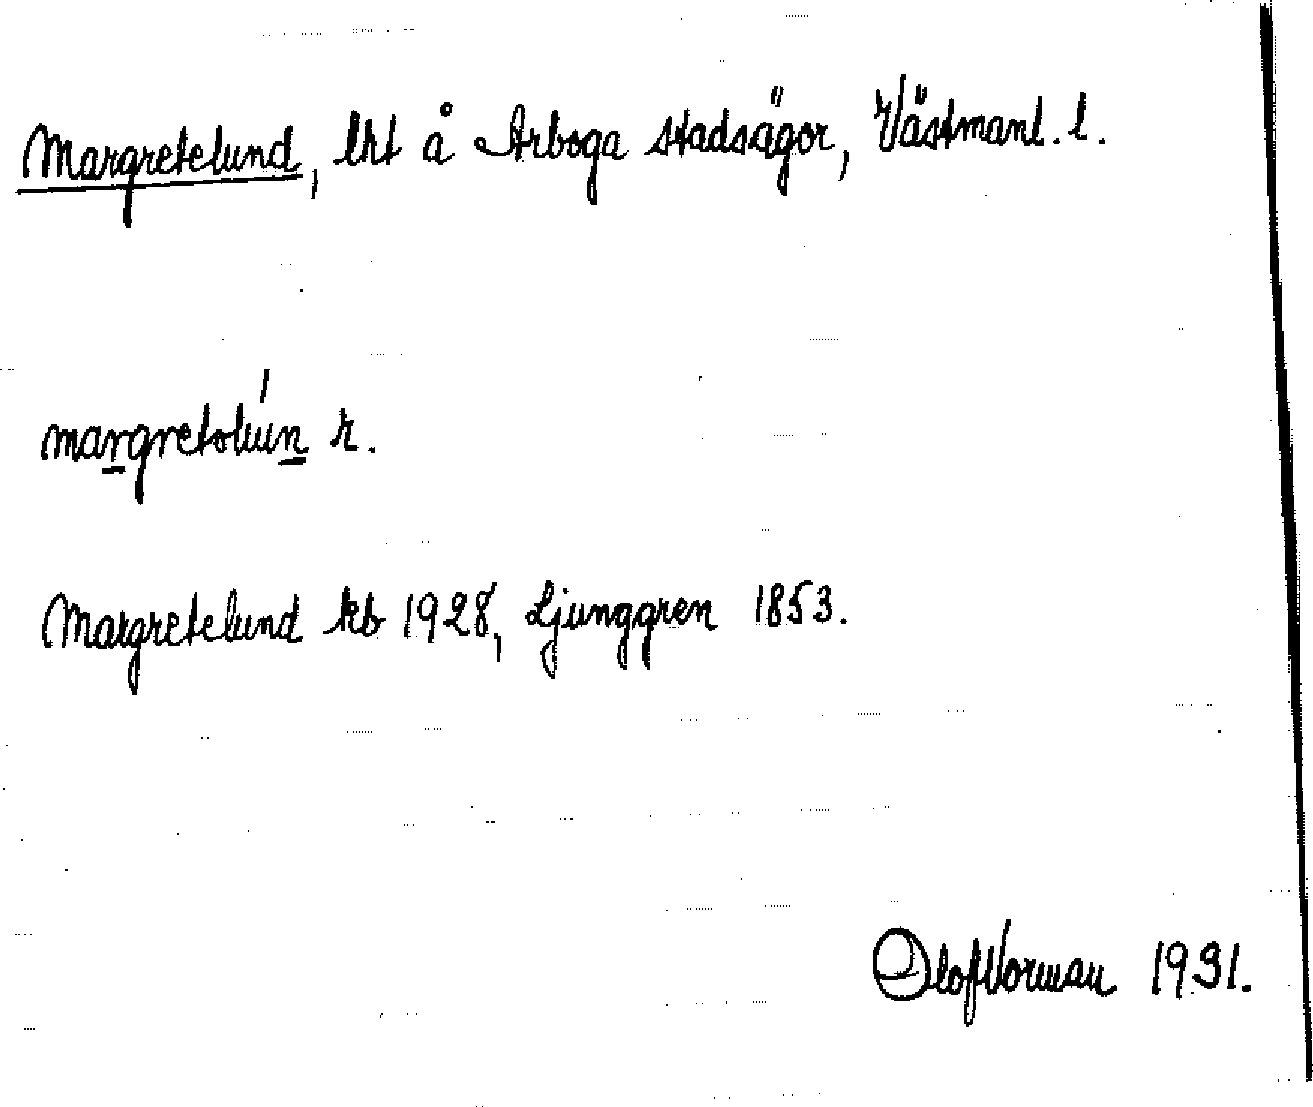 Margretelund, lht å Arboga stadsägor, Västmanl. l.
margretəlún r.
Margretelund kb 1928, Ljunggren 1853.
Olof Vorman 1931.